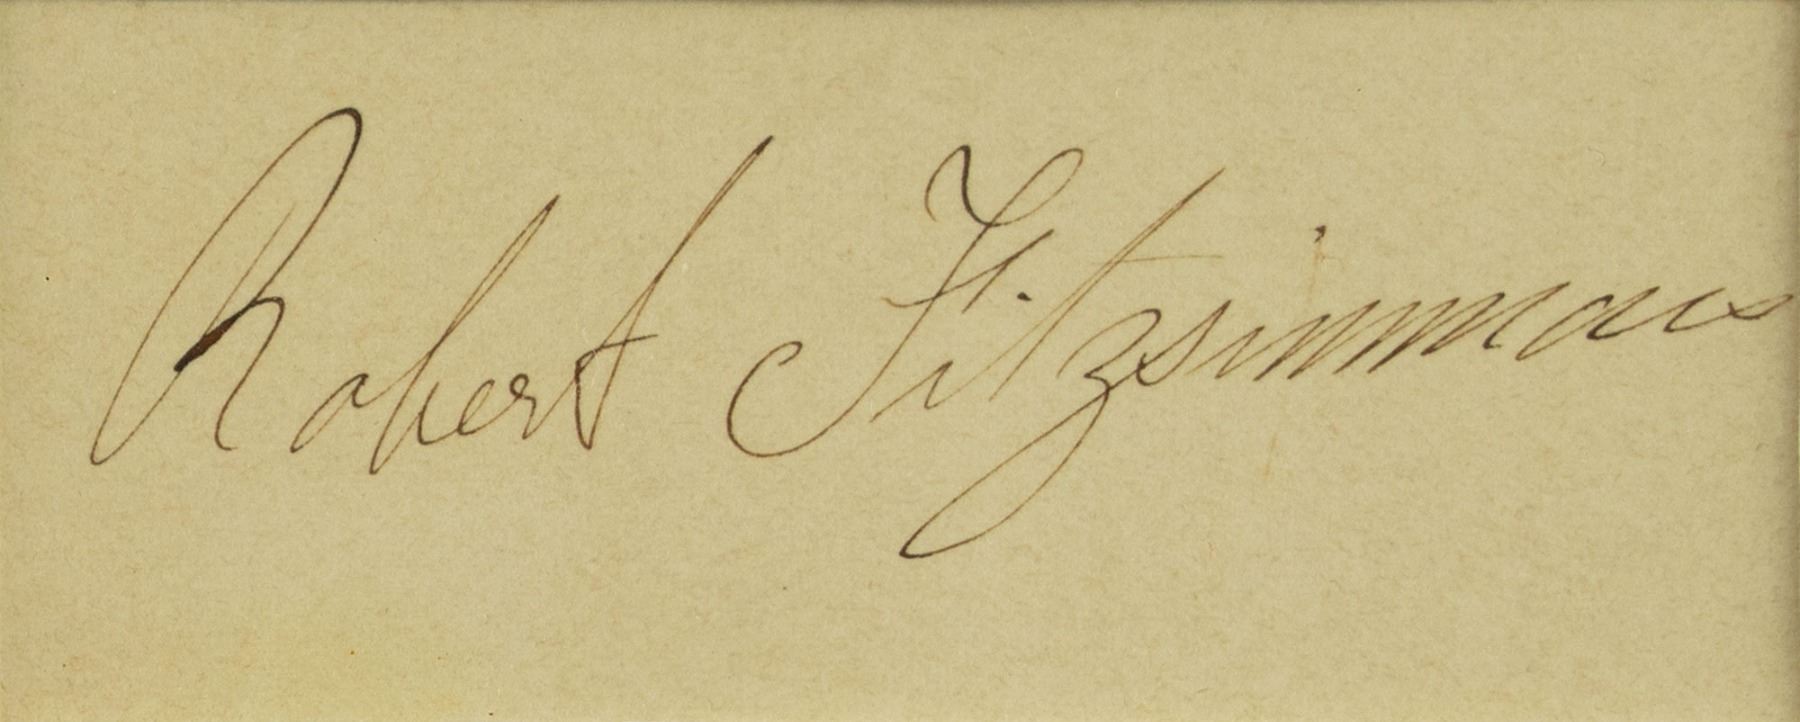 Robert Fitzsimmons